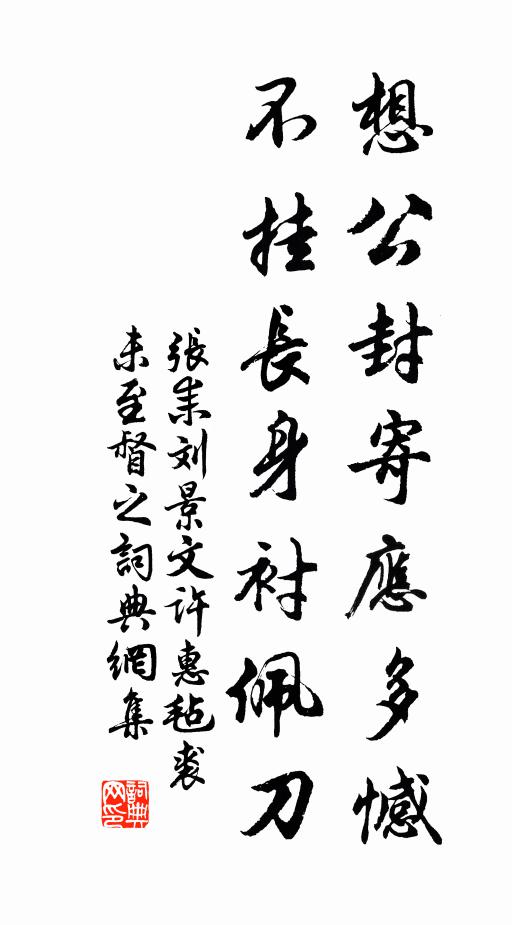 想公封寄應多憾
不挂長身衬佩刀
張耒刘景文許惠毡裘
未至督之詞典網集
詞典网印